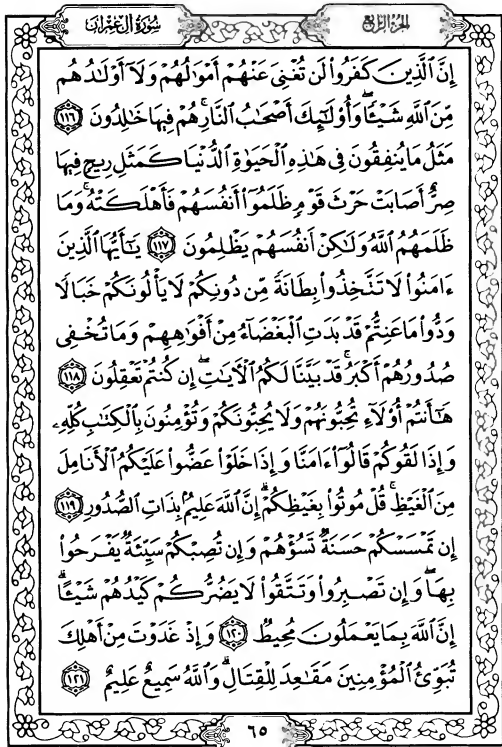 سُورَةُ آلِ عِمْرَان
الجزء الرابع
إِنَّ ٱلَّذِينَ كَفَرُوا۟ لَن تُغْنِىَ عَنْهُمْ أَمْوَٰلُهُمْ وَلَآ أَوْلَـٰدُهُم
مِّنَ ٱللَّهِ شَيْـًٔا ۖ وَأُو۟لَـٰٓئِكَ أَصْحَـٰبُ ٱلنَّارِ ۚ هُمْ فِيهَا خَـٰلِدُونَ ١١٦
مَثَلُ مَا يُنفِقُونَ فِى هَـٰذِهِ ٱلْحَيَوٰةِ ٱلدُّنْيَا كَمَثَلِ رِيحٍ فِيهَا
صِرٌّ أَصَابَتْ حَرْثَ قَوْمٍ ظَلَمُوٓا۟ أَنفُسَهُمْ فَأَهْلَكَتْهُ ۚ وَمَا
ظَلَمَهُمُ ٱللَّهُ وَلَـٰكِنْ أَنفُسَهُمْ يَظْلِمُونَ ١١٧ يَـٰٓأَيُّهَا ٱلَّذِينَ
ءَامَنُوا۟ لَا تَتَّخِذُوا۟ بِطَانَةً مِّن دُونِكُمْ لَا يَأْلُونَكُمْ خَبَالًا
وَدُّوا۟ مَا عَنِتُّمْ قَدْ بَدَتِ ٱلْبَغْضَآءُ مِنْ أَفْوَٰهِهِمْ وَمَا تُخْفِى
صُدُورُهُمْ أَكْبَرُ ۚ قَدْ بَيَّنَّا لَكُمُ ٱلْـَٔايَـٰتِ ۖ إِن كُنتُمْ تَعْقِلُونَ ١١٨
هَـٰٓأَنتُمْ أُو۟لَآءِ تُحِبُّونَهُمْ وَلَا يُحِبُّونَكُمْ وَتُؤْمِنُونَ بِٱلْكِتَـٰبِ كُلِّهِۦ
وَإِذَا لَقُوكُمْ قَالُوٓا۟ ءَامَنَّا وَإِذَا خَلَوْا۟ عَضُّوا۟ عَلَيْكُمُ ٱلْأَنَامِلَ
مِنَ ٱلْغَيْظِ ۚ قُلْ مُوتُوا۟ بِغَيْظِكُمْ ۗ إِنَّ ٱللَّهَ عَلِيمٌۢ بِذَاتِ ٱلصُّدُورِ ١١٩
إِن تَمْسَسْكُمْ حَسَنَةٌ تَسُؤْهُمْ وَإِن تُصِبْكُمْ سَيِّئَةٌ يَفْرَحُوا۟
بِهَا ۖ وَإِن تَصْبِرُوا۟ وَتَتَّقُوا۟ لَا يَضُرُّكُمْ كَيْدُهُمْ شَيْـًٔا ۗ
إِنَّ ٱللَّهَ بِمَا يَعْمَلُونَ مُحِيطٌ ١٢٠ وَإِذْ غَدَوْتَ مِنْ أَهْلِكَ
تُبَوِّئُ ٱلْمُؤْمِنِينَ مَقَـٰعِدَ لِلْقِتَالِ ۗ وَٱللَّهُ سَمِيعٌ عَلِيمٌ ١٢١
٦٥